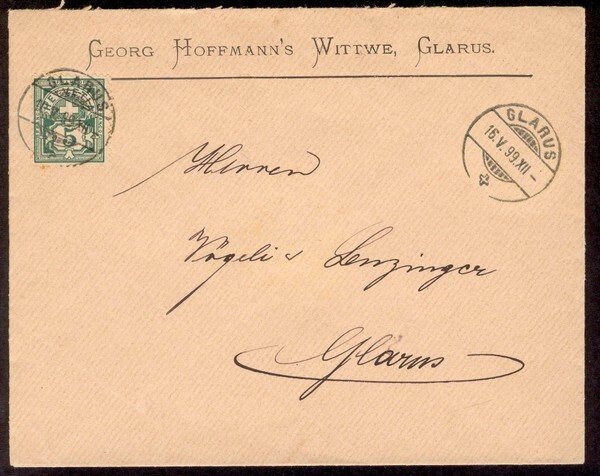 GEORG HOFFMANN'S WITTWE, GLARUS.
GLARUS
5
GLARUS
16.V.99.XII -
Herren
Vögeli & Lenzinger
Glarus